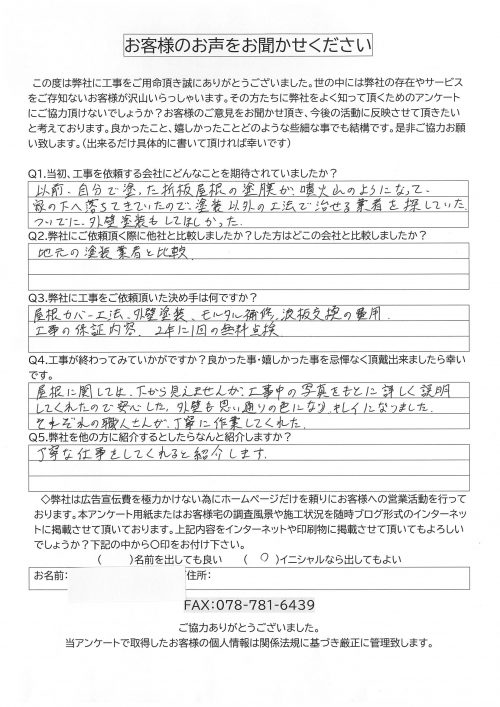 お客様のお声をお聞かせください
この度は弊社に工事をご用命頂き誠にありがとうございました。世の中には弊社の存在やサービス
をご存知ないお客様が沢山いらっしゃいます。その方たちに弊社をよく知って頂くためのアンケート
にご協力頂けないでしょうか?お客様のご意見をお聞かせ頂き、今後の活動に反映させて頂きたい
と考えております。良かったこと、嬉しかったことどのような些細な事でも結構です。是非ご協力お願
い致します。（出来るだけ具体的に書いて頂ければ幸いです）
Q1.当初、工事を依頼する会社にどんなことを期待されていましたか?
以前、自分で塗った折板屋根の塗膜が、噴火山のようになって、
家の下へ落ちてきていたので、塗装以外の工法で治せる業者を探していた。
ついでに、外壁塗装もしてほしかった。
Q2.弊社にご依頼頂く際に他社と比較しましたか?した方はどこの会社と比較しましたか?
地元の塗装業者と比較
Q3.弊社に工事をご依頼頂いた決め手は何ですか?
屋根カバー工法、外壁塗装、モルタル補修、波板交換の費用.
工事の保証内容. 2年に1回の無料点検.
Q4.工事が終わってみていかがですか?良かった事・嬉しかった事を忌憚なく頂戴出来ましたら幸い
です。
屋根に関しては、下から見えませんが、工事中の写真をもとに詳しく説明
してくれたので安心した。外壁も思い通りの色になり、キレイになりました.
それぞれの職人さんが、丁寧に作業してくれた.
Q5.弊社を他の方に紹介するとしたらなんと紹介しますか?
丁寧な仕事をしてくれると紹介します.
◇弊社は広告宣伝費を極力かけない為にホームページだけを頼りにお客様への営業活動を行って
おります。本アンケート用紙またはお客様宅の調査風景や施工状況を随時ブログ形式のインターネッ
トに掲載させて頂いております。上記内容をインターネットや印刷物に掲載させて頂いてもよろしい
でしょうか?下記の中から〇印をお付け下さい。
(　　)名前を出しても良い　(　○　)イニシャルなら出してもよい
お名前:　　住所:
FAX:078-781-6439
ご協力ありがとうございました。
当アンケートで取得したお客様の個人情報は関係法規に基づき厳正に管理致します。